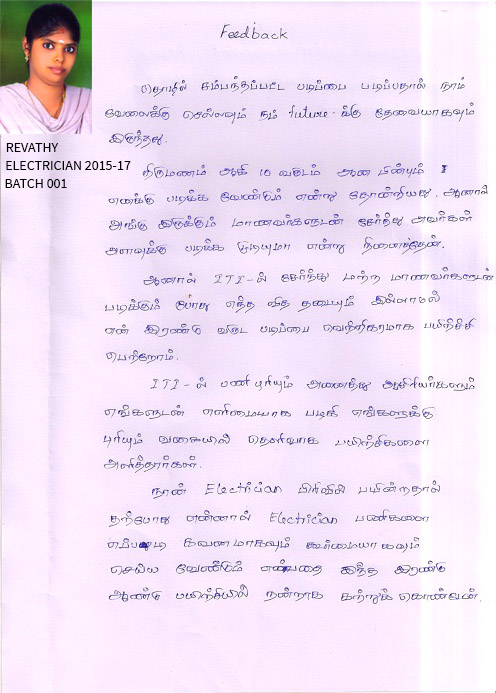 Feedback
REVATHY
ELECTRICIAN 2015-17
BATCH 001
தொழில் சம்பந்தப்பட்ட படிப்பை படிப்பதால் நாம்
வேலைக்கு செல்லவும் நம் future-க்கு தேவையாகவும்
இருந்தது.
திருமணம் ஆகி 10 வருடம் ஆன பின்பும்
எனக்கு படிக்க வேண்டும் என்று தோன்றியது. ஆனால்
அங்கு இருக்கும் மாணவர்களுடன் சேர்ந்து அவர்கள்
அளவுக்கு படிக்க முடியுமா என்று நினைத்தேன்.
ஆனால் ITI-ல் சேர்ந்து மற்ற மாணவர்களுடன்
படிக்கும் போது எந்த வித தடையும் இல்லாமல்
என் இரண்டு வருட படிப்பை வெற்றிகரமாக பயிற்சி
பெற்றோம்.
ITI-ல் பணிபுரியும் அனைத்து ஆசிரியர்களும்
எங்களுடன் எளிமையாக பழகி எங்களுக்கு
புரியும் வகையில் தெளிவாக பயிற்சிகளை
அளித்தார்கள்.
நான் Electrician பிரிவில் பயின்றதால்
தற்போது என்னால் Electrician பணிகளை
எப்படி கவனமாகவும் கூர்மையாகவும்
செய்ய வேண்டும் என்பதை இந்த இரண்டு
ஆண்டு பயிற்சியில் நன்றாக கற்றுக் கொண்டேன்.